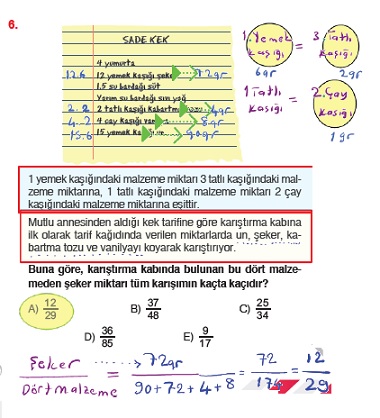 6.
SADE KEK
4 yumurta
12.6 12 yemek kaşığı şeker 72gr
1.5 su bardağı süt
Yarım su bardağı sıvı yağ
2.2 2 tatlı kaşığı kabartma tozu 4gr
4.2 4 çay kaşığı vanilya 8gr
15.6 15 yemek kaşığı un 90gr
1.Yemek kaşığı = 3 Tatlı kaşığı
6gr 2gr
1 Tatlı kaşığı = 2.Çay kaşığı
1gr
1 yemek kaşığındaki malzeme miktarı 3 tatlı kaşığındaki mal-
zeme miktarına, 1 tatlı kaşığındaki malzeme miktarı 2 çay
kaşığındaki malzeme miktarına eşittir.
Mutlu annesinden aldığı kek tarifine göre karıştırma kabına
ilk olarak tarif kağıdında verilen miktarlarda un, şeker, ka-
bartma tozu ve vanilyayı koyarak karıştırıyor.
Buna göre, karıştırma kabında bulunan bu dört malze-
meden şeker miktarı tüm karışımın kaçta kaçıdır?
A) 12/29 B) 37/48 C) 25/34
D) 36/85 E) 9/17
Şeker / Dört malzeme → 72gr / 90+72+4+8 = 72/174 = 12/29